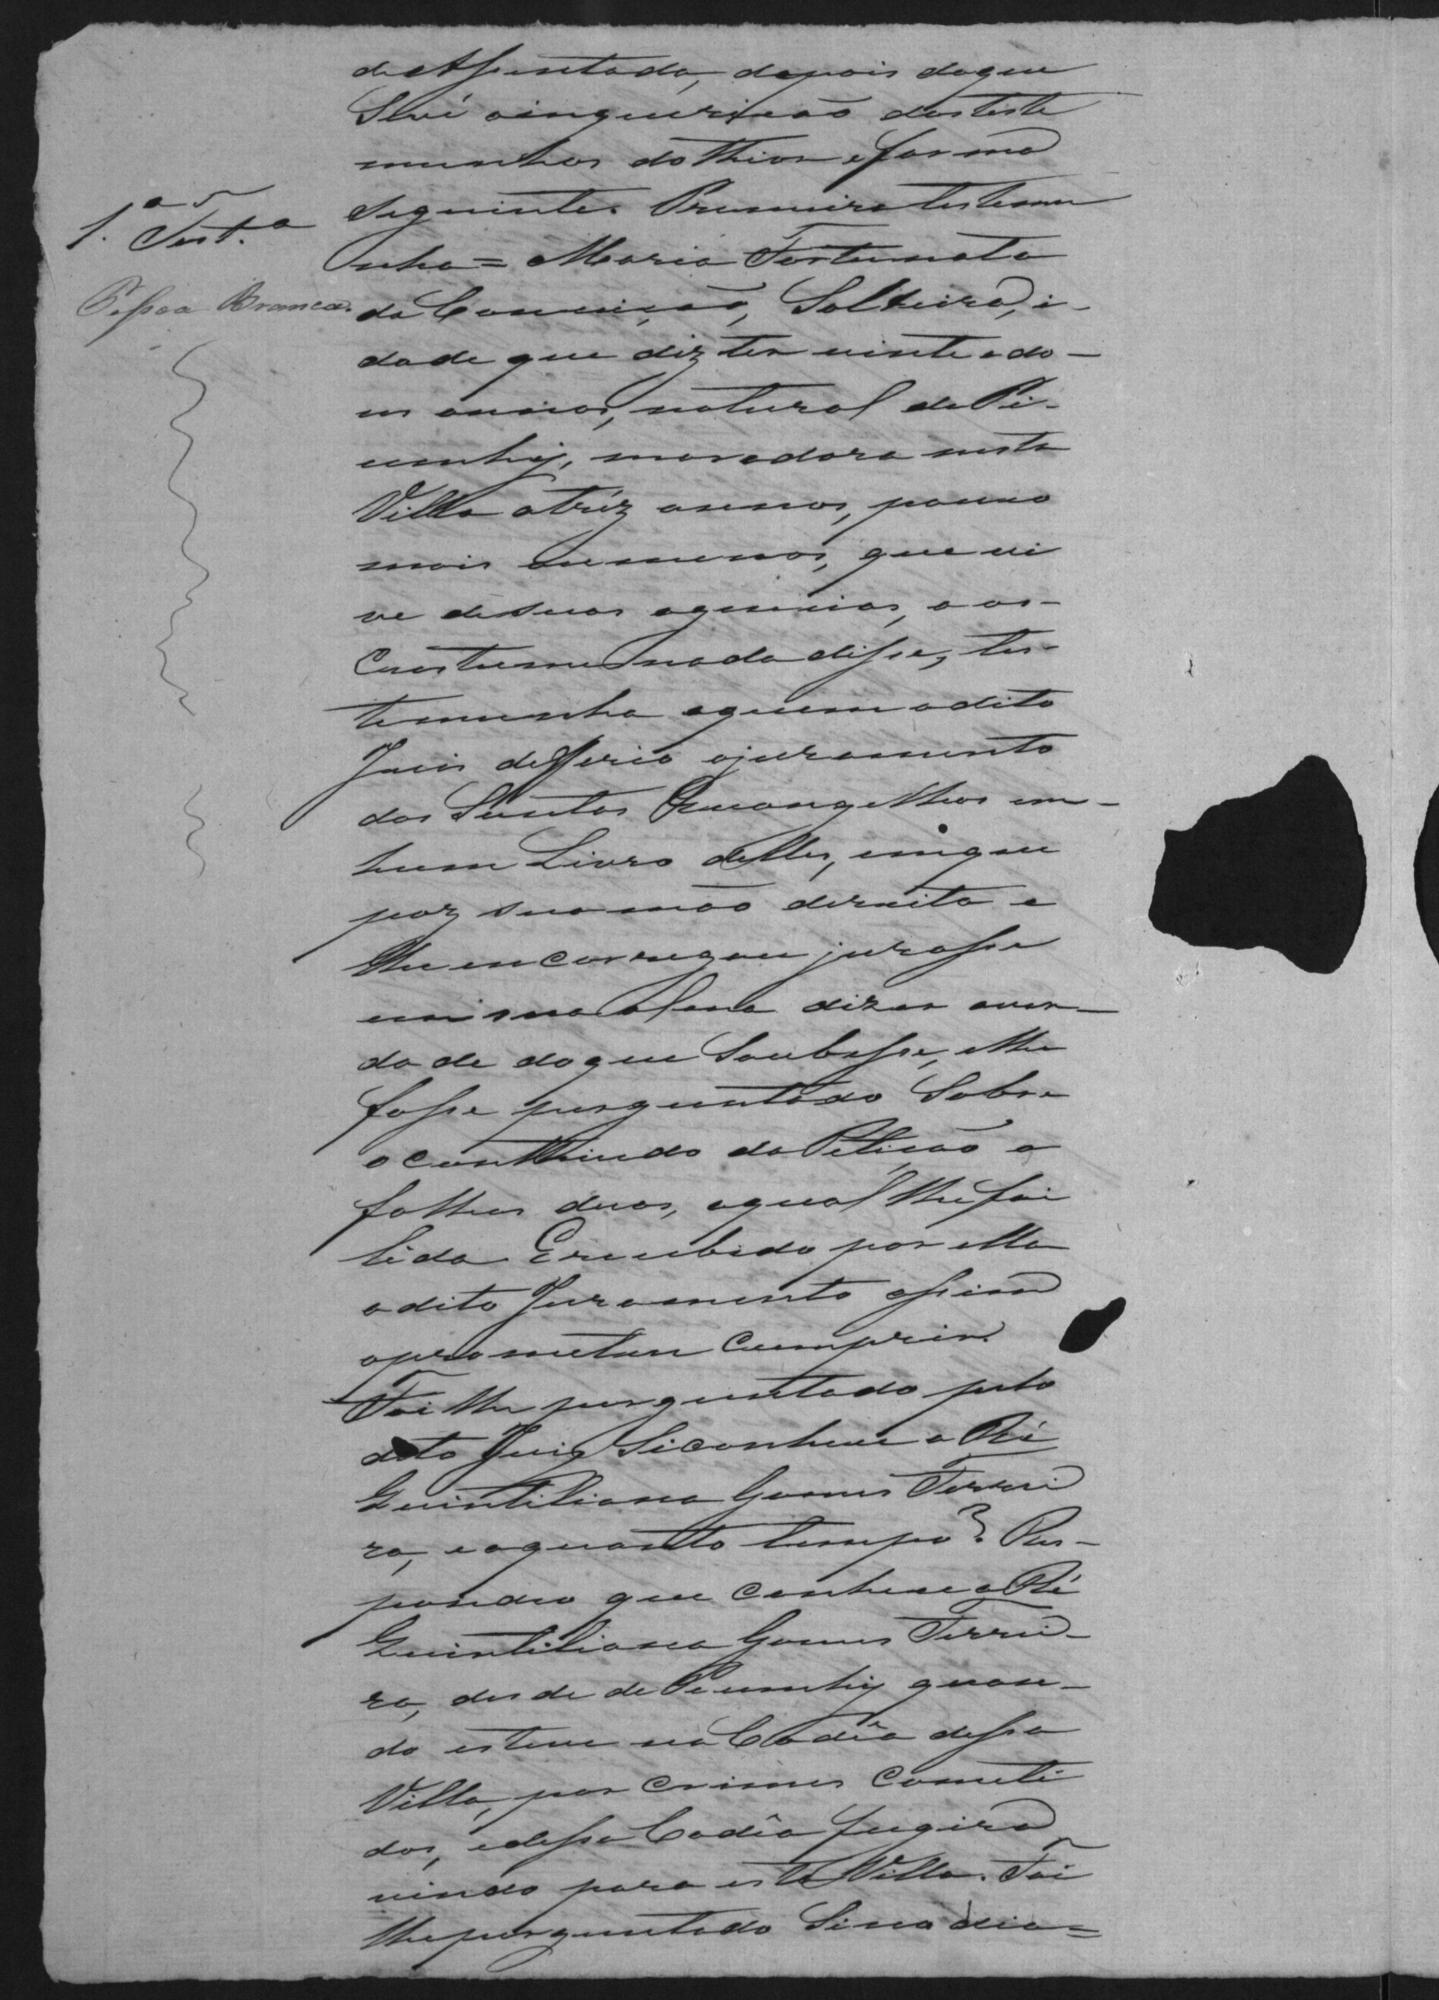 de Assentada, depois do que
Se vê a inquirição das teste
munhas do theor e forma
Seguinte. Primeira testemu
1.ª Test.ª
nha = Maria Fortunata
Pessoa Branca.
da Conceição, Solteira, i-
dade que diz ter vinte e do-
us annos, natural de Pi-
umhy, moradora nesta
Villa a tréz annos, pouco
mais ou menos, que vi
ve de suas agencias, e aos
Custume nada disse, tes-
temunha a quem o dito
Juis defferio o juramento
dos Santos Evangelhos em
hum Livro delles, em que
poz sua mão dereita e
lhe encarregou jurasse
em sua alma dizer a ver-
dade do que Soubesse, e lhe
fosse perguntado Sobre
o contheudo da Petição a
folhas duas, a qual lhe foi
lida E recebido por ella
o dito Juramento assim
o prometeu Cumprir.
Foi lhe perguntado pelo
dito Juiz Si conhece a Ré
Quintiliana Gomes Ferrei
ra, e a quanto tempo? Res-
pondeo que conhece a Ré
Quintiliana Gomes Ferrei-
ra, desde de Piumhy quan-
do esteve na Cadêa dessa
Villa, por crimes Cometi
dos, e dessa Cadêa fugira
vindo para esta Villa. Foi
lhe perguntado Si no dia =